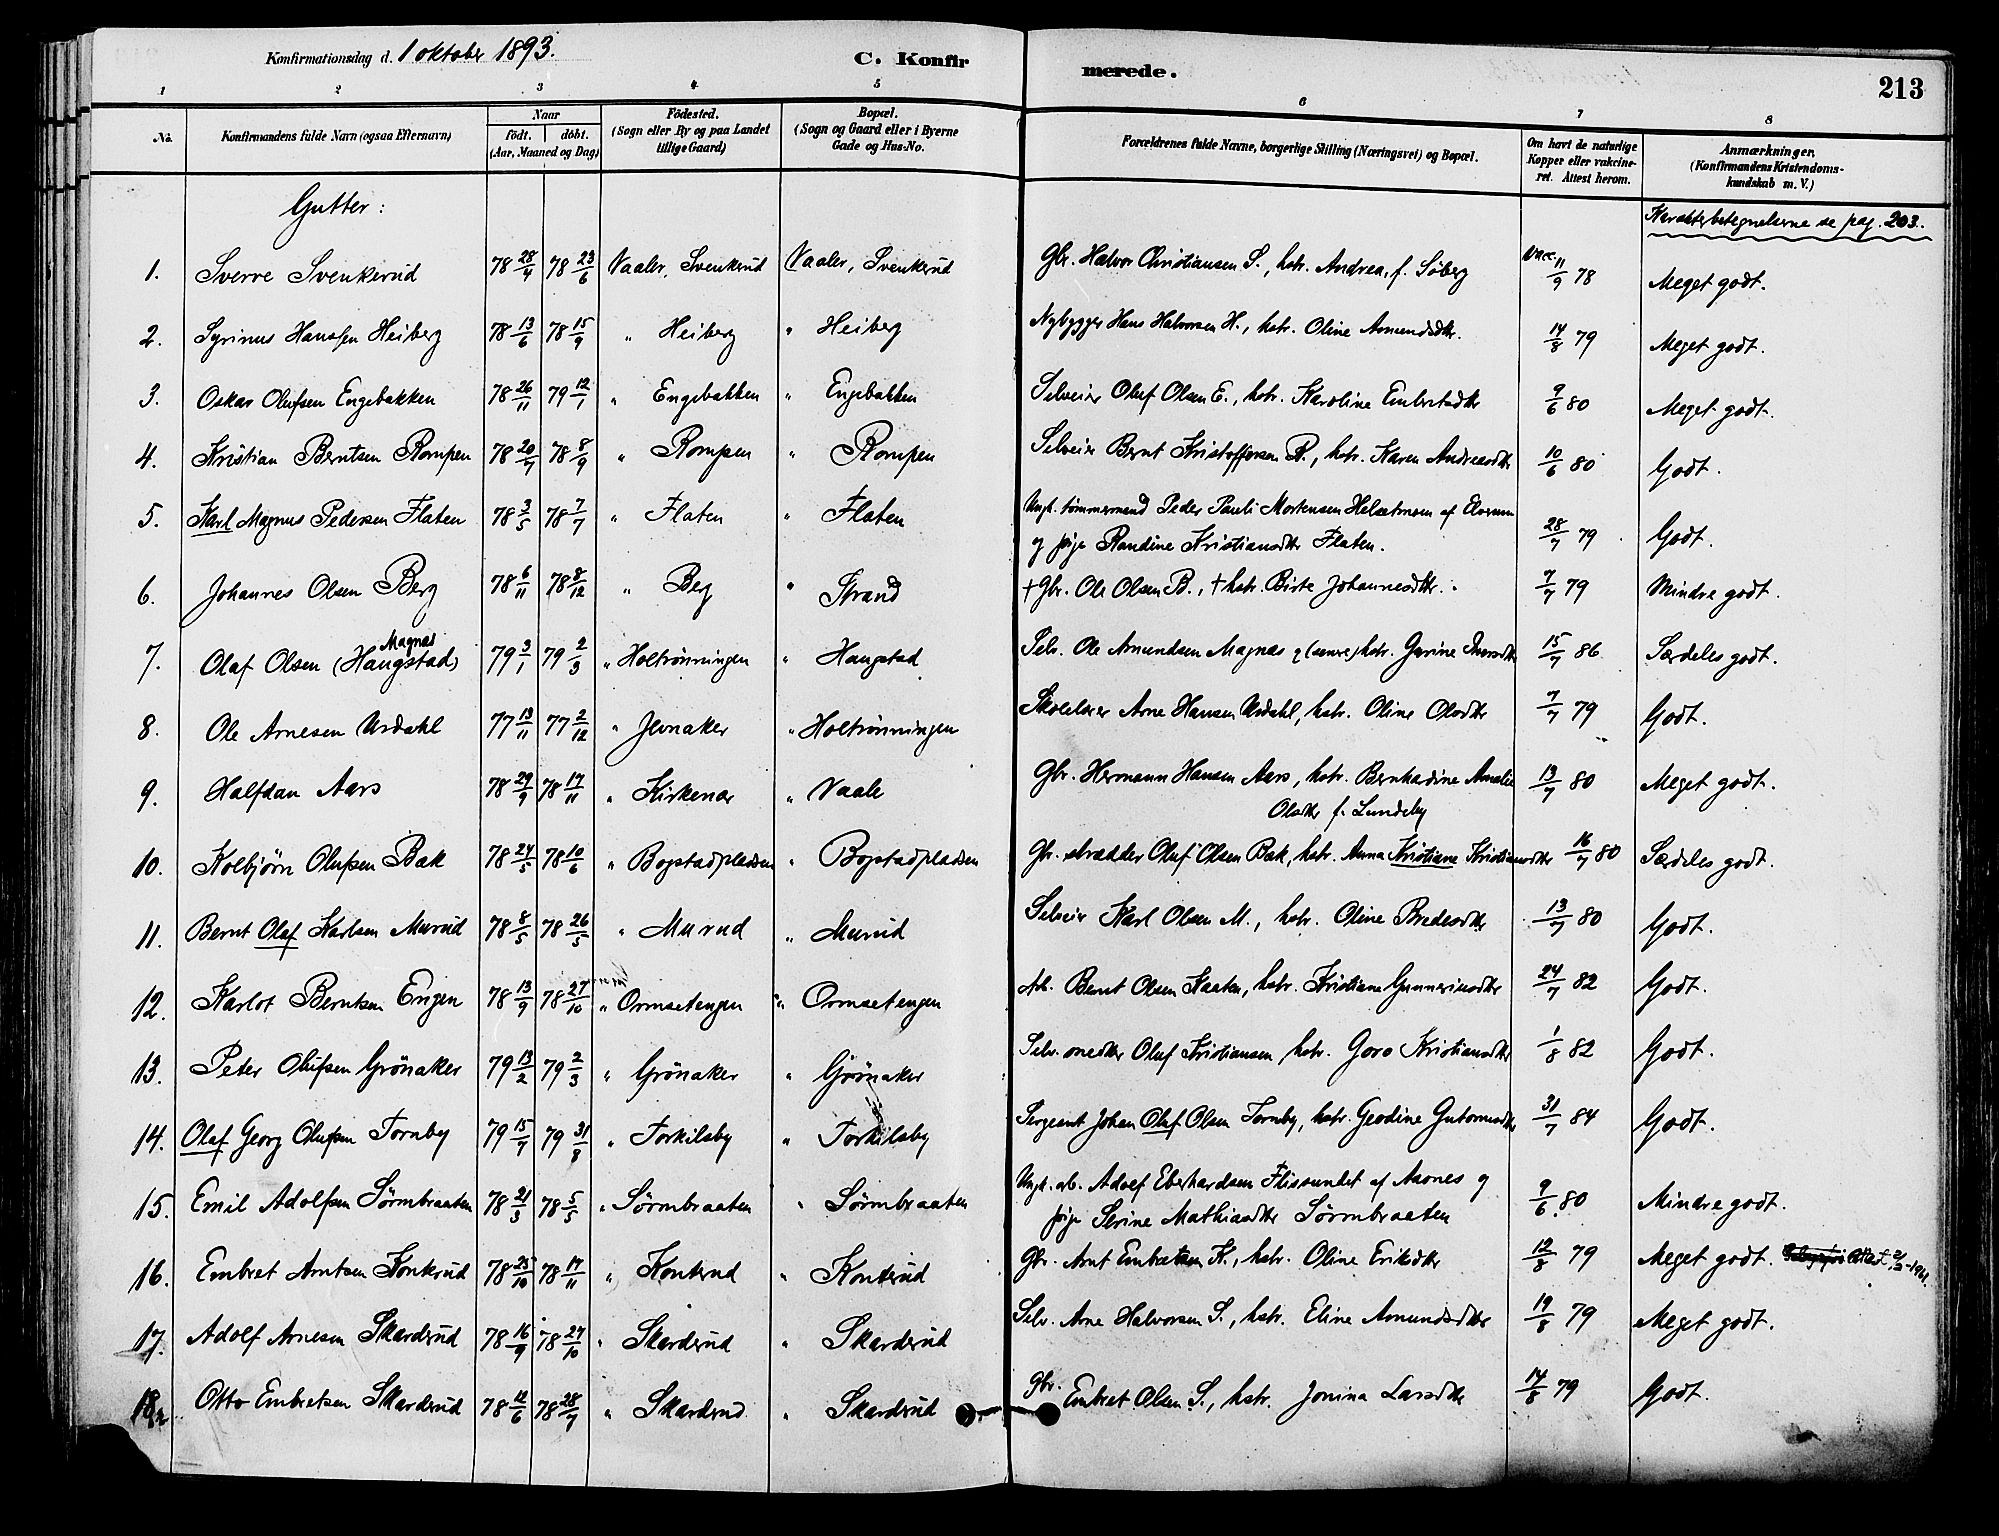 Konfirmationsdag d. 1 oktober 1893.
C. Konfir merede.
213
1 2 3 4 5 6 7 8
No. Konfirmandens fulde Navn (ogsaa Efternavn) Naar født. døbt. (Aar, Maaned og Dag) Fødested. (Sogn eller By og paa Landet tillige Gaard) Bopæl. (Sogn og Gaard eller i Byerne Gade og Hus-No. Forældrenes fulde Navne, borgerlige Stilling (Næringsvei) og Bopæl. Om havt de naturlige Kopper eller vakcineret. Attest herom. Anmærkninger, (Konfirmandens Kristendomskundskab m. V.)
Gutter:
Karakterbetegnelserne se pag. 203.
1. Sverre Svenkerud 78 28/4 78 23/6 Vaaler, Svenkerud Vaaler, Svenkerud Gbr. Halvor Christiansen S., hstr. Andrea, f. Söberg Vacc. 11/9 78 Meget godt.
2. Syrinus Hanssen Heiberg 78 13/6 78 15/9 " Heiberg " Heiberg Nybygger Hans Halvorsen H., hstr. Oline Amundsdtr. 14/8 79 Meget godt.
3. Oskar Olufsen Engebakken 78 26/11 79 12/1 " Engebakken " Engebakken Selveier Oluf Olsen E., hstr. Karoline Embretsdtr 9/6 80 Meget godt.
4. Kristian Berntsen Rompen 78 20/7 78 8/9 " Rompen " Rompen Selveier Bernt Kristoffersen R., hstr. Karen Andreasdtr 10/6 80 Godt.
5. Karl Magnus Pedersen Flaten 78 3/5 78 7/7 " Flaten " Flaten Ungk. tømmermand Peder Pauli Mortensen Helsetmoen af Elverum
og pige Randine Kristiansdtr Flaten. 28/7 79 Godt.
6. Johannes Olsen Berg 78 6/11 78 8/12 " Berg " Strand + Gbr. Ole Olsen B., + hstr. Birte Johannesdtr. 7/7 79 Mindre godt.
7. Olaf Olsen (Haugstad) Magnas 79 3/1 79 2/3 " Holtrønningen " Haugstad Selv. Ole Amundsen Magnas og hstr. Gurine 15/7 86 Særdeles godt.
8. Ole Arnesen Urdahl 77 13/11 77 2/12 " Jevnaker " Holtrønningen Skolelærer Arne Hansen Urdahl, hstr. Oline Olsdtr 7/7 79 Godt.
9. Halfdan Aars 78 29/9 78 17/11 " Kirkenær " Vaale Gbr. Hermann Hansen Aars, hstr. Bernhardine Amalie
Olsdtr f. Lundeby 13/7 80 Meget godt.
10. Kolbjörn Olufsen Bak 78 24/5 78 10/6 " Bogstadpladsen " Bogstadpladsen Gbr. skrædder Oluf Olsen Bak, hstr. Anna Kristiane Kristiansdtr 16/7 80 Særdeles godt.
11. Bernt Olaf Karlsen Murud 78 8/5 78 26/5 " Murud " Murud Selveier Karl Olsen M., hstr. Oline Bredesdtr 13/7 80 Godt.
12. Karlot Berntsen Engen 78 13/9 78 27/10 " Ormsetengen " Ormsetengen Arb. Bernt Olsen Kaaten, hstr. Kristiane Gunneriusdtr 24/7 82 Godt.
13. Peter Olufsen Grønaker 79 13/2 79 2/3 " Grønaker " Grønaker Selv. snedker Oluf Kristiansen hstr. Goro Kristiansdtr 1/8 82 Godt.
14. Olaf Georg Olufsen Tornby 79 15/7 79 31/8 " Torkilsby " Torkilsby Sergeant Johan Olaf Olsen Tornby, hstr. Geodine Gutormsdtr 31/7 84 Godt.
15. Emil Adolfsen Sörmbraaten 78 21/3 78 5/5 " Sörmbraaten " Sörmbraaten Ungk. arb. Adolf Eberhardsen Flissundet af Aasnes og
pige Serine Mathiasdtr Sörmbraaten 9/6 80 Mindre godt.
16. Embret Arntsen Konterud 78 25/10 78 17/11 " Konterud " Konterud Gbr. Arnt Embretsen K., hstr. Oline Eriksdtr 12/8 79 Meget godt. Attest 2/2-1961.
17. Adolf Arnesen Skarderud 78 16/9 78 27/10 " Skarderud " Skarderud Selv. Arne Halvorsen S., hstr. Eline Amundsdtr 19/8 79 Meget godt.
18. Otto Embretsen Skarderud 78 12/6 78 28/7 " Skarderud " Skarderud Gbr. Embret Olsen S., hstr. Jonina Larsdtr 14/8 79 Godt.